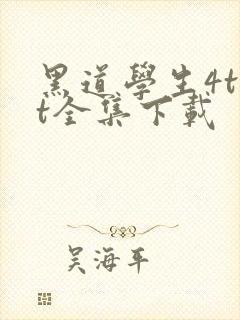 黑道學生4t
t全集下載
吴海平